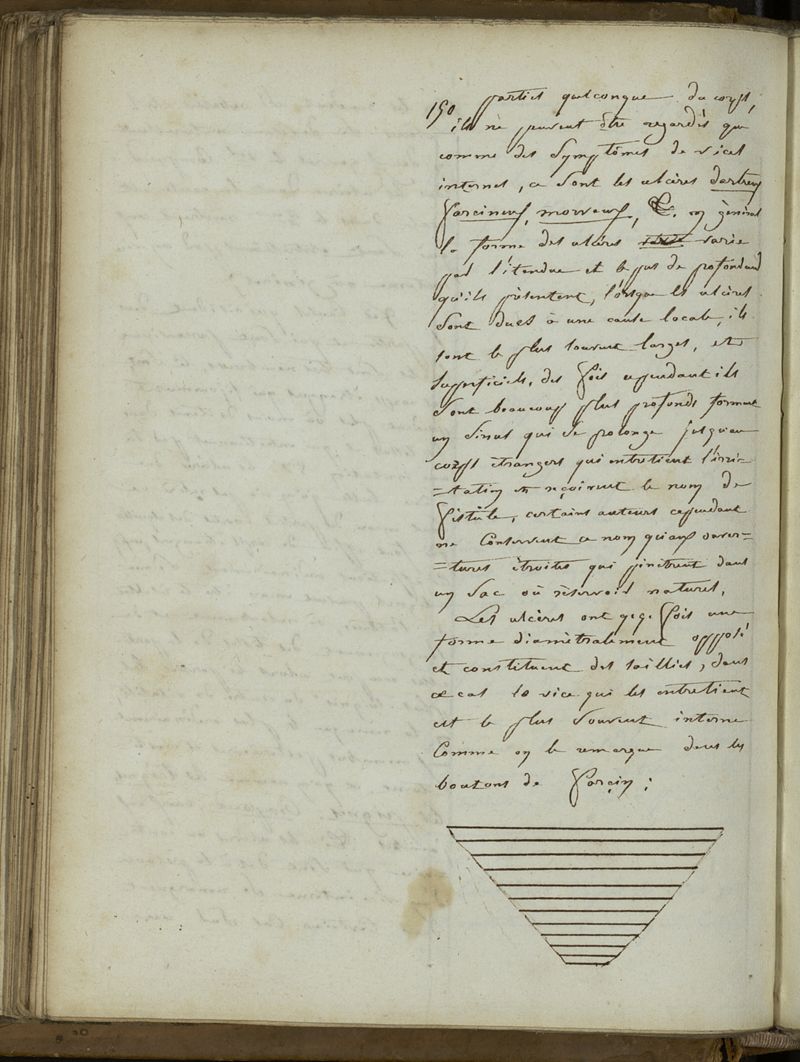 150
parties quelconque du corps,
ils ne peuvent être regardés que
comme des Symptômes de vices
internes, ce sont les ulcères dartreux
farcineux, morveux, &. en général
la forme des ulcères varie
par l'étendue et le plus de profondeur
qu'ils présentent, lorsque les ulcères
sont dues à une cause locale, ils
sont le plus souvent larges, et
superficiels, des fois cependant ils
sont beaucoup plus profonds forment
un sinus qui se prolonge jusqu'au
corps étrangers qui entretient l'irri=
=tation et reçoivent le nom de
fistule, certains auteurs cependant
ne conservent ce nom qu'aux ouver=
=tures étroites qui pénètrent dans
un sac où réservoir naturel,
Les ulcères ont qq. fois une
forme diamètralement opposé
et constituent des saillies, dans
ce cas le vice qui les entretient
est le plus souvent interne
Comme on le remarque dans les
boutons de farçin ;